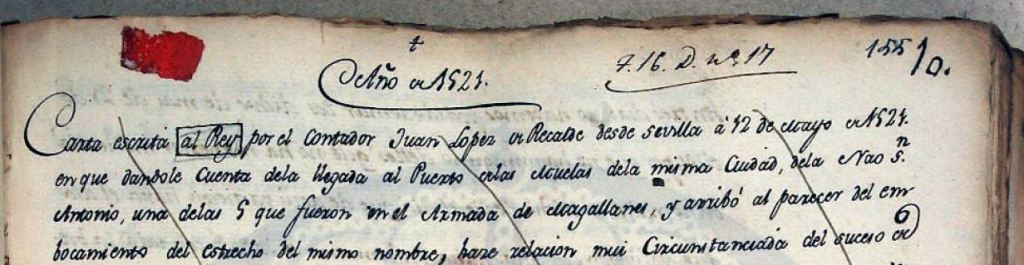 †
Año de 1521.
F. 16. D. nº. 17
155
10.
Carta escrita al Rey por el Contador Juan Lopez de Recalde desde Sevilla á 12 de Mayo de 1521.
en que dandole Cuenta dela llegada al Puerto delas Muelas dela misma Ciudad, dela Nao S.n
Antonio, una delas 5 que fueron en el Armada de Magallanes, y arribó al parecer del em
bocamiento del estrecho del mismo nombre, haze relacion mui Circunstanciada del suceso de